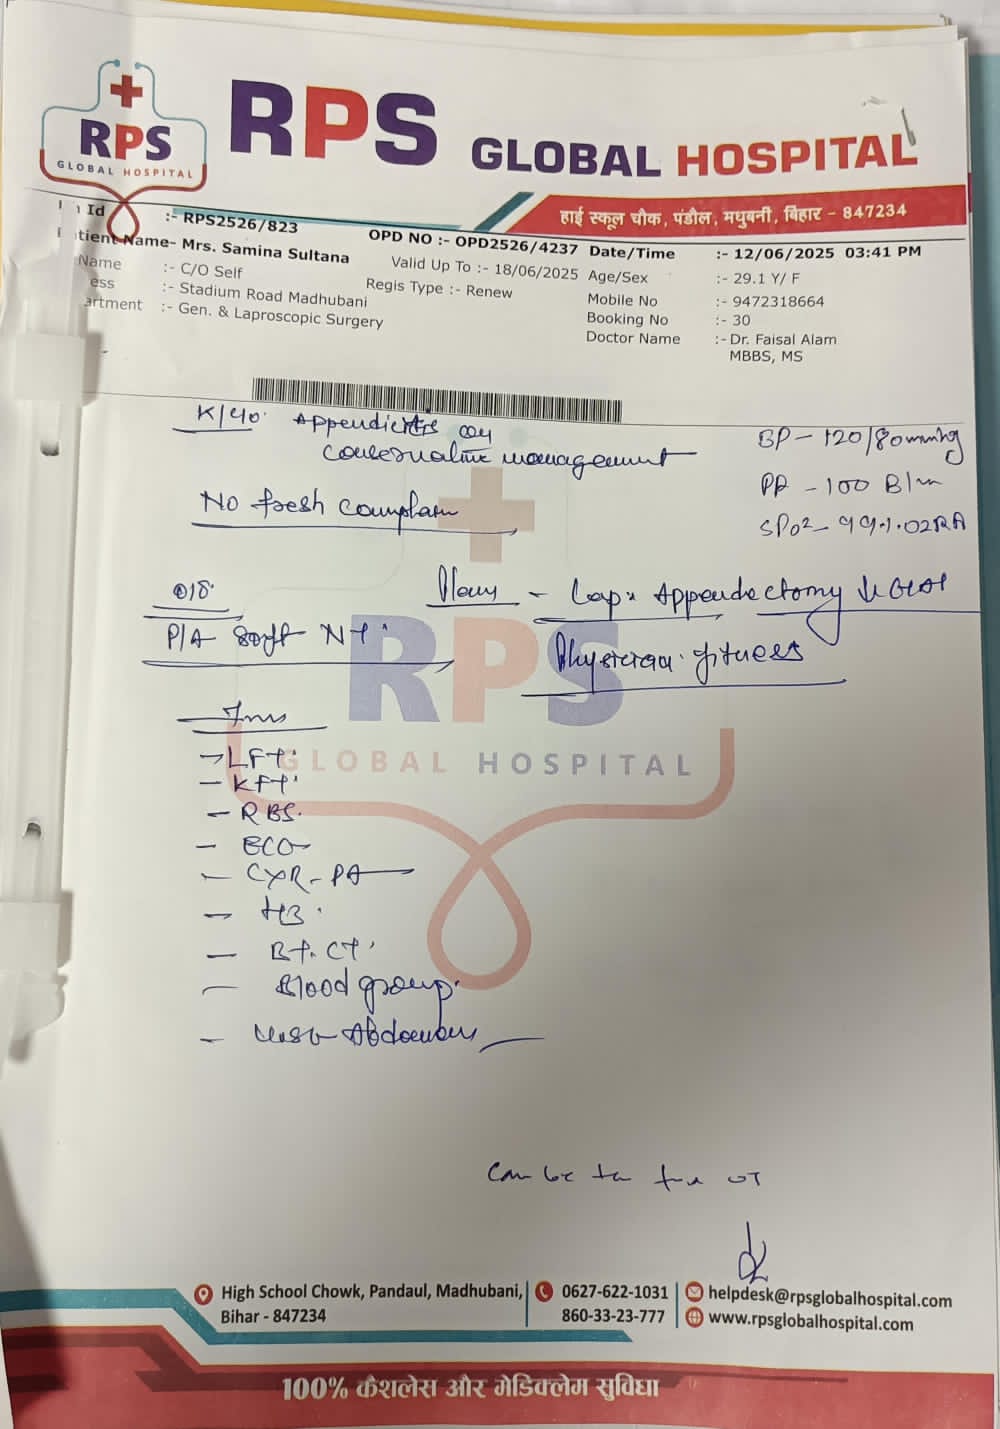 RPS
GLOBAL HOSPITAL
RPS GLOBAL HOSPITAL
हाई स्कूल चौक, पंडौल, मधुबनी, बिहार - 847234
Id :- RPS2526/823
OPD NO :- OPD2526/4237
Date/Time :- 12/06/2025 03:41 PM
tient Name- Mrs. Samina Sultana
Valid Up To :- 18/06/2025
Age/Sex :- 29.1 Y/ F
Name :- C/O Self
Regis Type :- Renew
Mobile No :- 9472318664
ess :- Stadium Road Madhubani
Booking No :- 30
artment :- Gen. & Laproscopic Surgery
Doctor Name :- Dr. Faisal Alam
MBBS, MS
K/40. Appendicitis on
conservative management
BP - 120/80mmhg
PR - 100 B/m
SPO2 - 99.1.02RA
No fresh complain
Plan - Lap. Appendectomy
Physician fitness
P/A Soft NT
- LFT
- KFT
- RBS
- ECG
- CXR-PA
- HB
- BT. CT
- Blood group
- Abdomen
RPS
GLOBAL HOSPITAL
Can be OT
High School Chowk, Pandaul, Madhubani,
Bihar - 847234
0627-622-1031
860-33-23-777
helpdesk@rpsglobalhospital.com
www.rpsglobalhospital.com
100% कैशलेस और मेडिक्लेम सुविधा